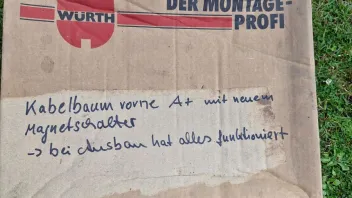 WÜRTH
DER MONTAGE-
PROFI
Kabelbaum vorne A+ mit neuem
Magnetschalter
-> bei Ausbau hat alles funktioniert